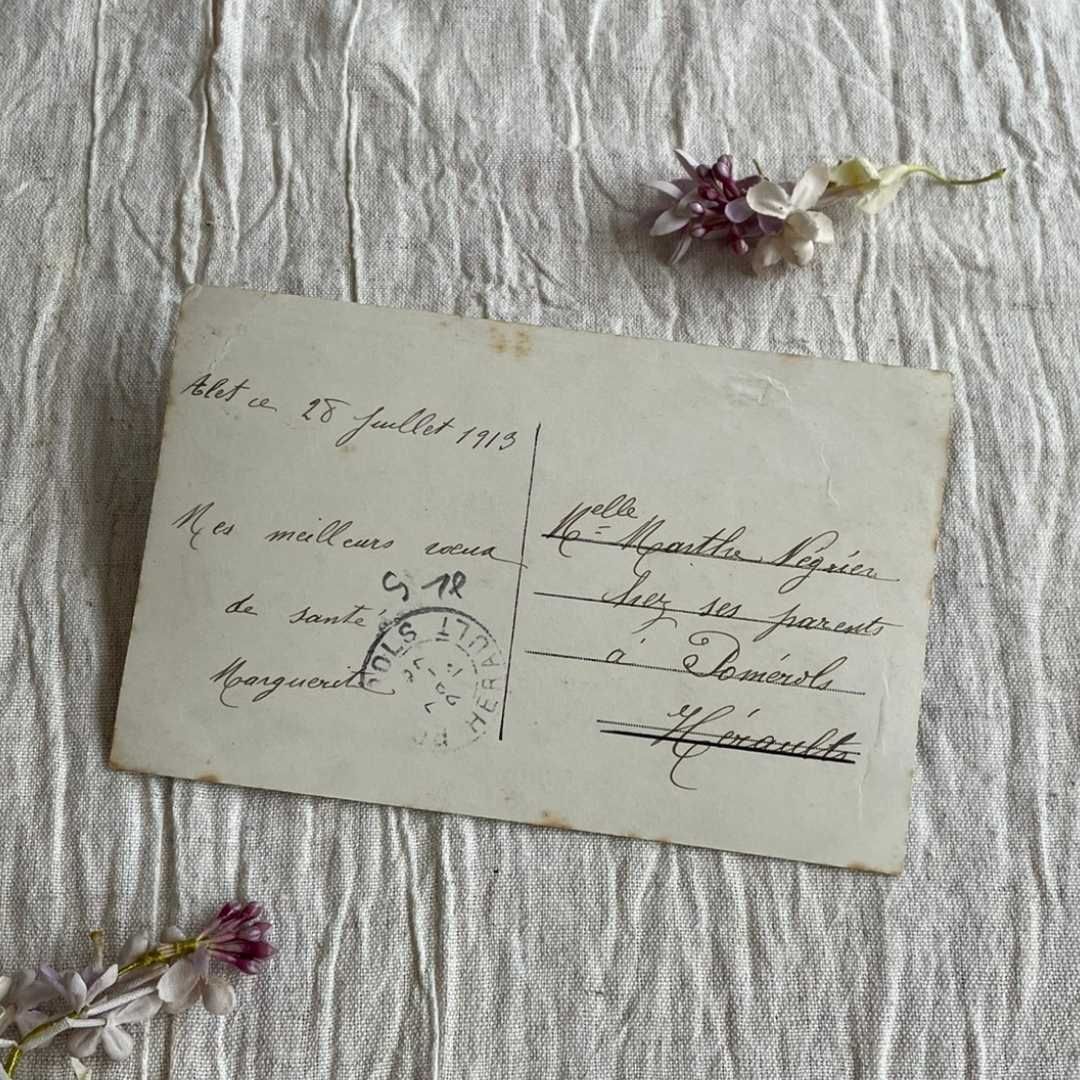 Alet ce 28 Juillet 1913
Mes meilleurs voeux
de santé
Marguerite
9 12
POMÉROLS
29 -7
13
HÉRAULT
Melle Marthe Négrier
chez ses parents
à Pomérols
Hérault